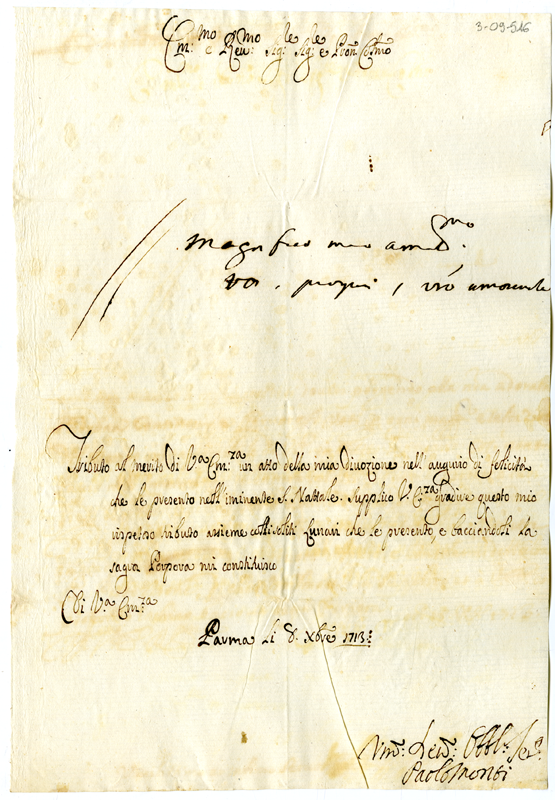 3-09-516
Em:mo e Reu:mo Sig:le Sig:le e Pron Col:mo
Magnifico mio am:mo
pregi, vro amorevole
Tributo al merito di Va Em:za un atto della mia diuozione nell'augurio di felicità
che le presento nell'iminente S. Nattale. Supplico V. E:za gradire questo mio
rispettoso tributo assieme coll'soliti Lunari che le presento, e bacciandoli la
sagra Porpora mi constituisco
Di Va Em:za
Parma li 8. Xbre 1713:
Vm: Deu: Obbl: Ser:
Paolo Monti